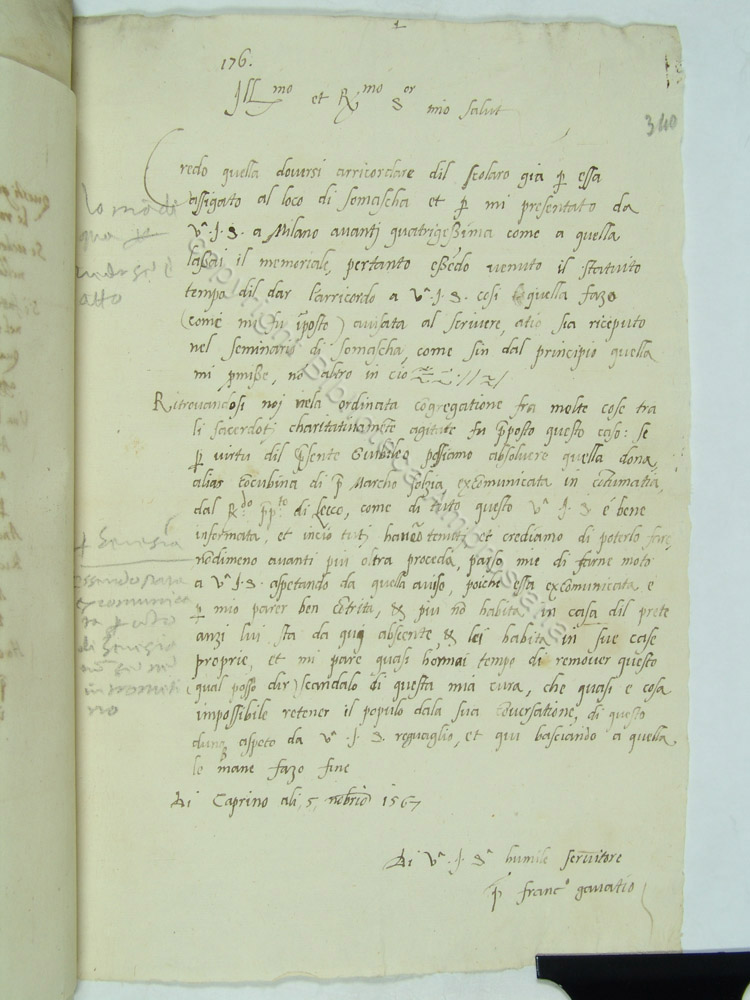 1
176.
Ill.mo et R.mo S.or mio salut
340
Credo quella doversi arricordare dil scolaro già p essa
assigato al loco di somascha et p mi presentato da
V.a .I. S. a Milano avantj quatrigessima come a quella
lassai il memoriale, pertanto essedo venuto il statuito
tempo dil dar l'arricordo a V.a .I. S. cosi quella fazo
(come mi fu iposto) avisata al scrivere, atio sia riceputo
nel seminario di somascha, come sin dal principio quella
mi pmisse, no altro in cio
Ritrovandosi noj nela ordinata cogregatione fra molte cose tra
li sacerdotj charitativamete agitate fu pposto questo caso: se
p virtu dil psente Giubileo possiamo absolvere quella dona,
alias cocubina di p Marcho excomunicata in cotumatia
dal R.do pp.to di Lecco, come di tutto questo V.a I. S. é bene
informata, et incio tuti havemo tenuti et crediamo di poterlo fare,
nodimeno avanti piu oltra proceda, parso mie di farne moto
a V.a I. S. aspetando da quella aviso, poiche essa excomunicata e
p mio parer ben cotrita, & piu no habita in casa dil prete
anzi lui sta da qui absente, & lei habita in sue case
proprie, et mi pare quasi hormai tempo di remover questo
(qual posso dir) scandalo di questa mia cura, che quasi e cosa
impossibile retener il populo dala sua coversatione, di questo
dunq aspeto da V.a .I. S. reguaglio, et qui basciando a quella
le mane fazo fine
Di Caprino ali, 5, 1567
Di V.a .I. S.a humile servitore
p franc.o gavatio